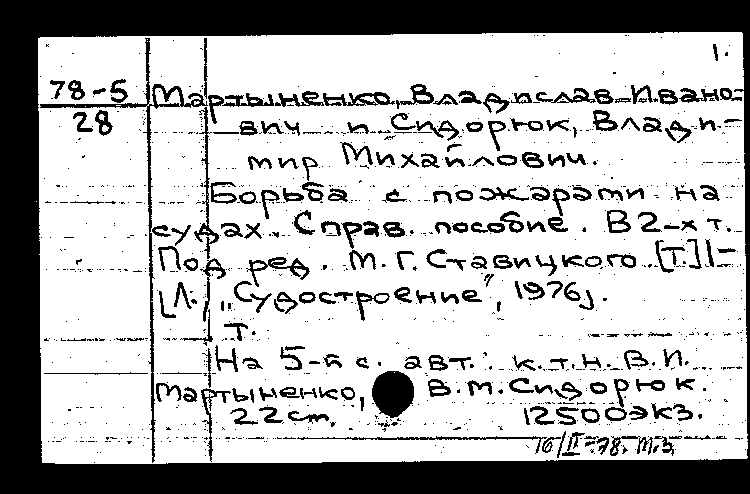 1.
78-5 Мартыненко, Владислав Ивано-
28 вич и Сидорюк, Влади-
мир Михайлович.
Борьба с пожарами на
судах. Справ. пособие. В 2-х т.
Под ред. М.Г. Ставицкого. [Т.] 1-
[Л., „Судостроение", 1976].
Т.
На 5-й с. авт.: к.т.н. В.И.
Мартыненко, В.М. Сидорюк.
22 cm. 12500 экз.
10/II-78.